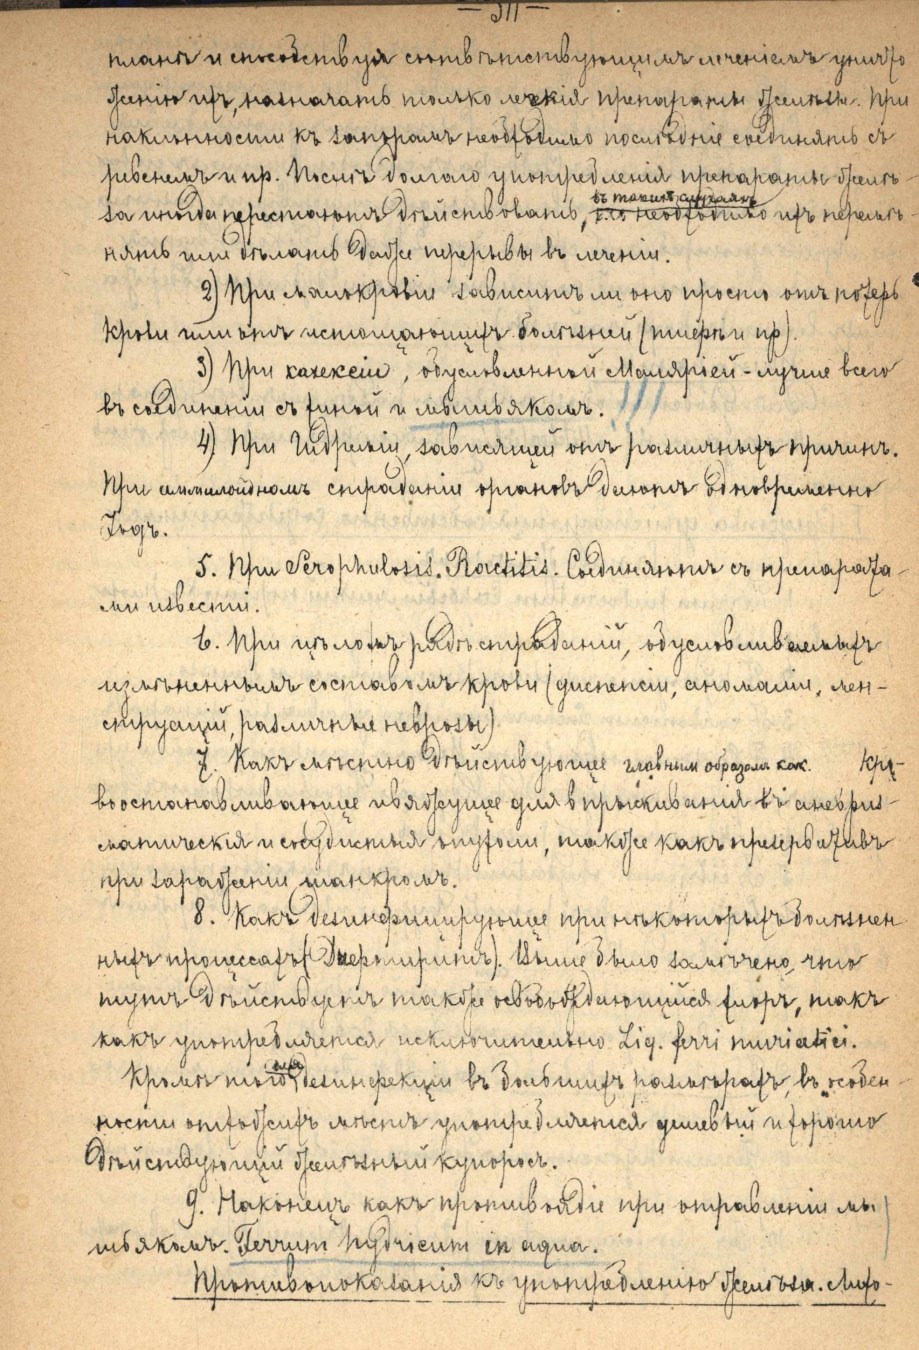 — 311 —
планѣ и способствуя соотвѣтствующимъ леченіемъ уничто
женію ихъ, назначать только легкія препараты желѣза. При
наклонности къ запорамъ необходимо послѣдніе соединять съ
ревенемъ и пр. Послѣ долгаго употребленія препараты желѣ-
за иногда перестаютъ дѣйствовать, въ такихъ случаяхъ необходимо ихъ перемѣ-
нять или дѣлать даже перерывы въ леченіи.
2) При малокровіи зависитъ ли оно просто отъ потерь
крови или отъ истощающихъ болѣзней (тифъ и пр).
3) При кахексіи, обусловленной Маляріей - лучше всего
въ соединеніи съ хиной и мышьякомъ. !!!
4) При Гидреміи, зависящей отъ различныхъ причинъ.
При аммилоидномъ страданіи органовъ даютъ одновременно
Іодъ.
5. При Scrophulosis. Rachitis. Соединяютъ съ препарата-
ми извести.
6. При цѣломъ рядѣ страданій, обусловливаемыхъ
измѣненнымъ составомъ крови (диспепсіи, аномаліи, мен-
струацій, различные неврозы)
7. Какъ мѣстно дѣйствующее главнымъ образомъ как. Кро-
воостанавливающее и вяжущее для впрыскиванія въ аневриз-
матическія и сосудистыя опухоли, также какъ презервативъ
при зараженіи шанкромъ.
8. Какъ дезинфицирующее при нѣкоторыхъ болѣзнен-
ныхъ процессахъ (Дифтеритъ). Выше было замѣчено, что
тутъ дѣйствуетъ также освобождающійся хлоръ, такъ
какъ употребляется исключительно Liq. ferri muriatici.
Кромѣ того для дезинфекціи въ большихъ размѣрахъ, въ особен-
ности отхожихъ мѣстъ употребляется дешевый и хорошо
дѣйствующій желѣзный купоросъ.
9. Наконецъ какъ противоядіе при отравленіи мы
шьякомъ. Ferrum hydricum in aqua.
Противопоказанія къ употребленію желѣза. Лихо-